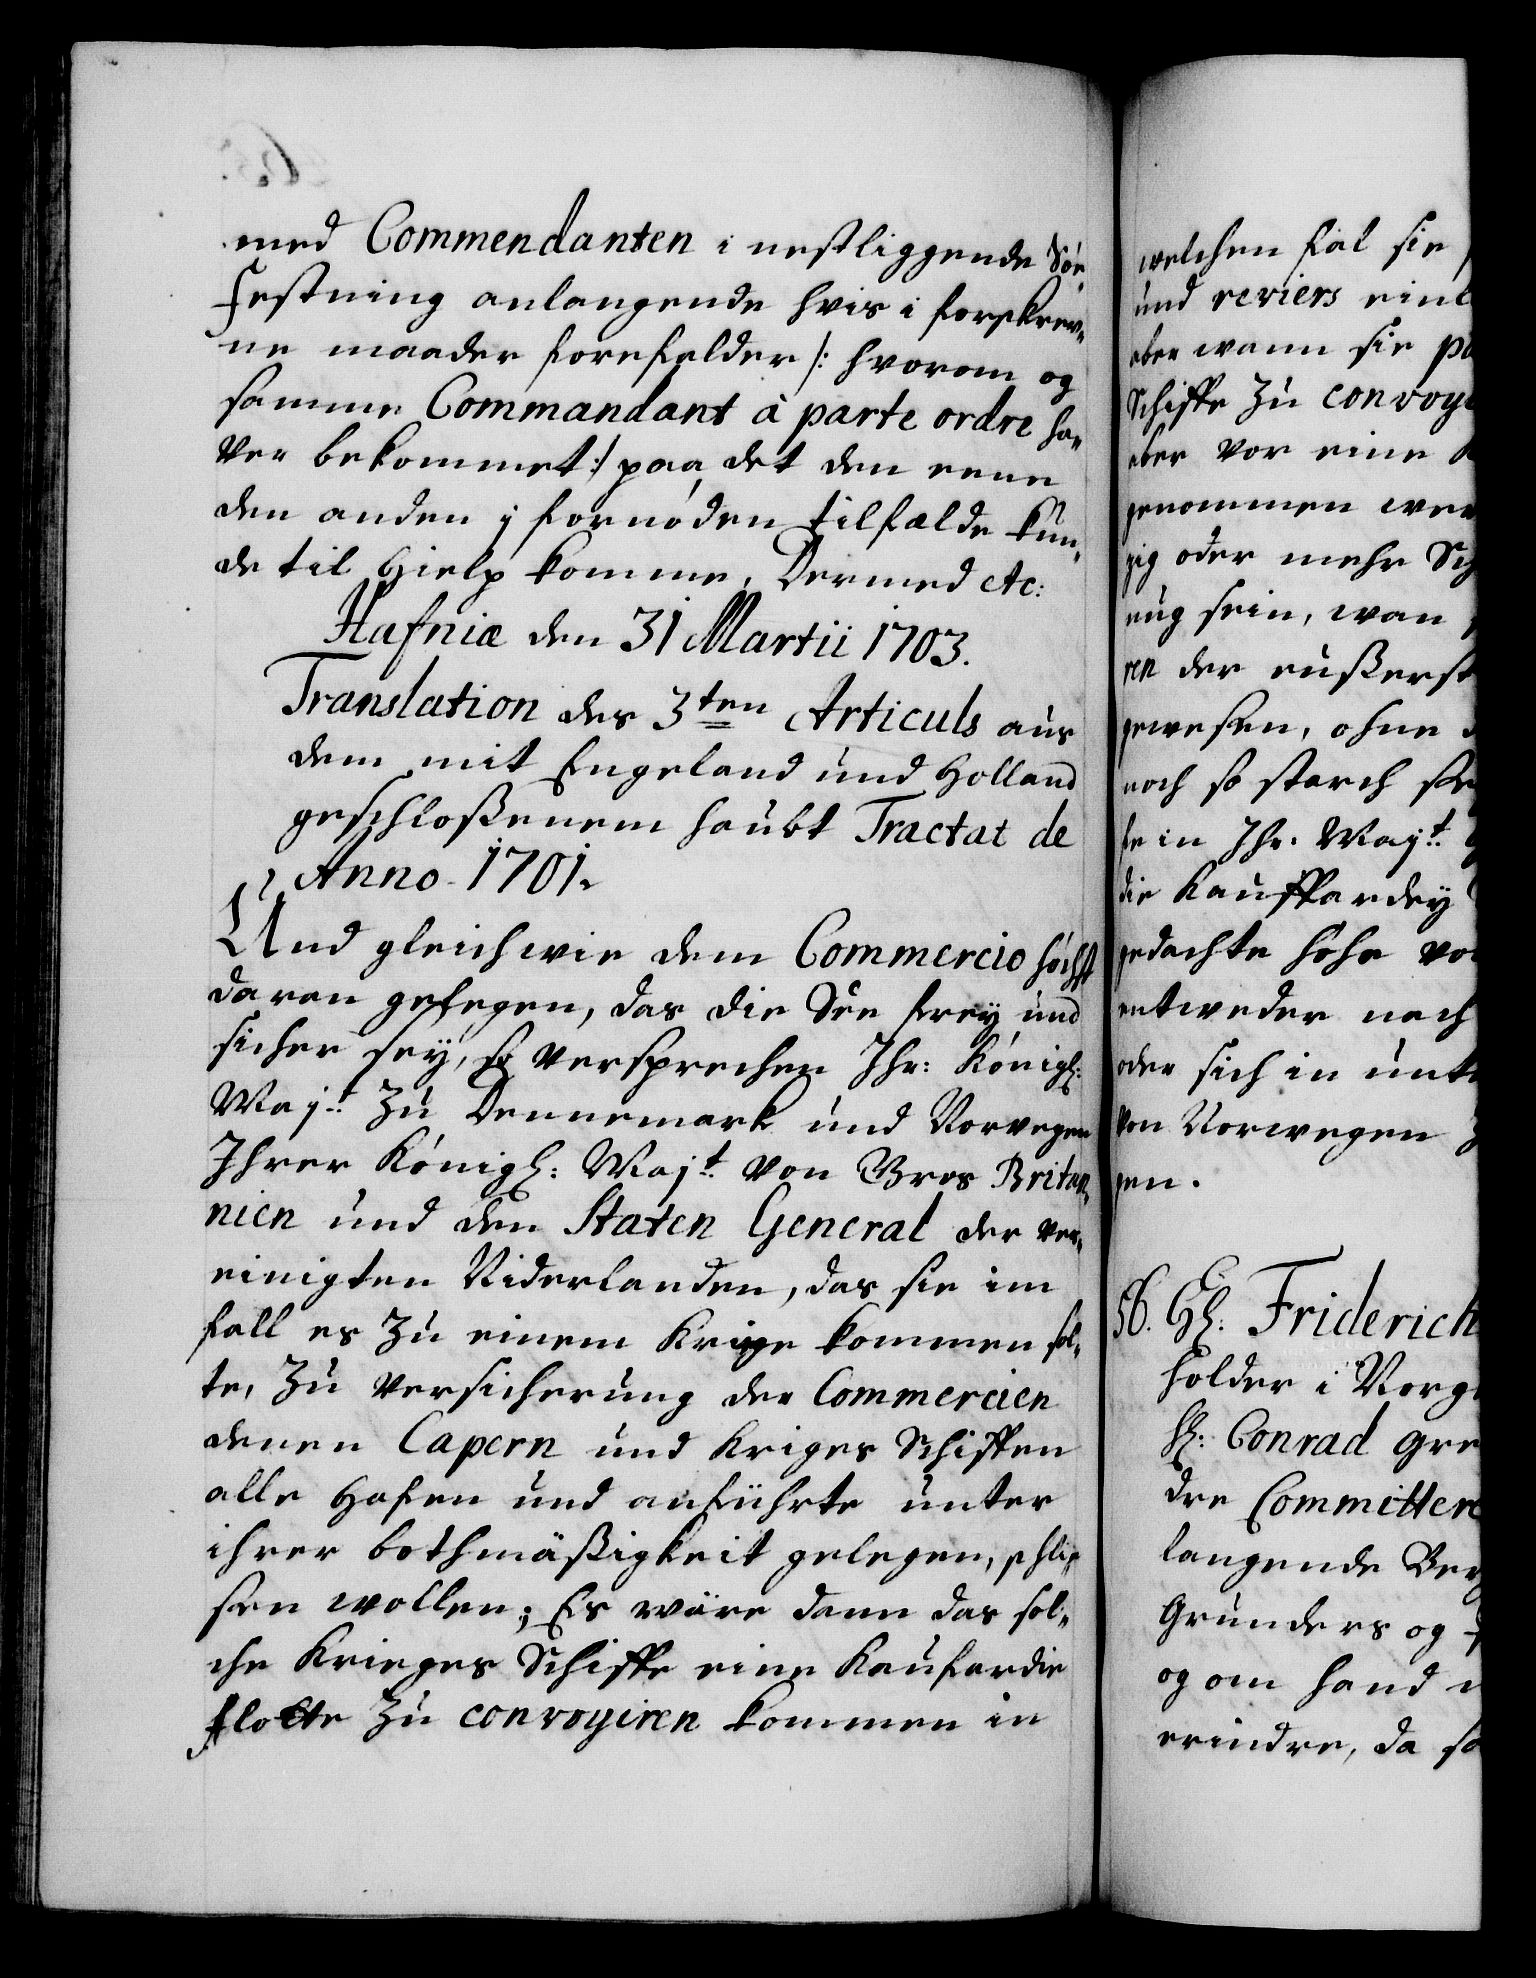 med Commendanten i nestliggende Söe
Festning anlangende hvis i forskrev„
ne maader forefelder /: hvorom og
samme Commandant à parte ordre ha„
ver bekommet :/ paa det den eene
den anden j fornöden tilfælde kun„
de til hielp komme, Dermed etc:
Hafniæ den 31 Martii 1703.
Translation des 3ten Articuls aus
dem mit Engeland und Holland
geschloßenem haubt Tractat de
Anno 1701.
Und gleichwie dem Commercio höchst
daran gelegen, das die Sëe frey und
sicher sey, so versprechen Ihr: Königl:
Majt. Zu Dennemark und Norvegen
Ihrer Königl: Majt. von Gros Britan„
nien und den Staten General der ver„
einigten Niderlanden, das sie im
fall es Zu einem Krige kommen sol„
te, Zu versicherung der Commercien
denen Capern und Kriges Schiffen
alle Hafen und anführte unter
ihrer bothmäßigkeit gelegen, schlie„
sen wollen; Es wäre dann das sol„
che Krieges Schiffe eine Kaufardie
flotte Zu convoyiren kommen in
welchen fal sie
und reviers einl
aber wann sie pa
Schiffe Zu convoye
aber vor eine K
genommen wer
zig oder mehr Sch
nug sein, wan
ren der eußerst
gewesen, ohne
noch so starch se
fe in Ihr. Majt.
die Kauffardey
gedachte hohe vo
entweder nach
oder sich in unt
von Norwegen Z
gen.
56. Gl: Friderich
holder i Norg
Hl: Conrad Gre
dre Committere
langende Ber
Gründers og
og om hand
erindre, da so